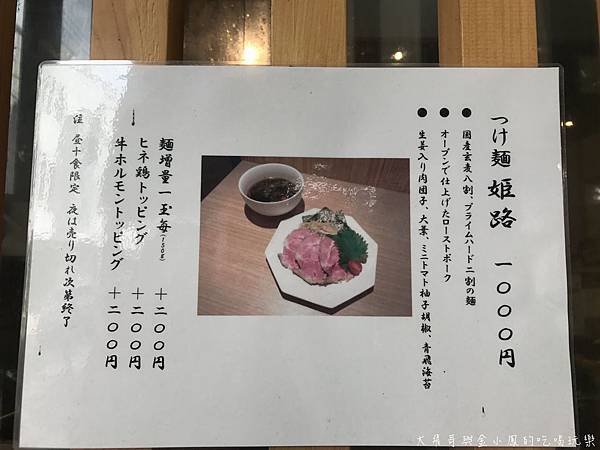 つけ麺 姫路 一〇〇〇円
● 国産玄麦八割、プライムハード二割の麺
● オーブンで仕上げたローストポーク
● 生姜入り肉団子、大葉、ミニトマト柚子胡椒、青飛海苔
麺増量一玉毎(150g) +二〇〇円
ヒネ鶏トッピング +二〇〇円
牛ホルモントッピング +二〇〇円
注 昼十食限定 夜は売り切れ次第終了
大飛哥與金小鳳的吃喝玩樂